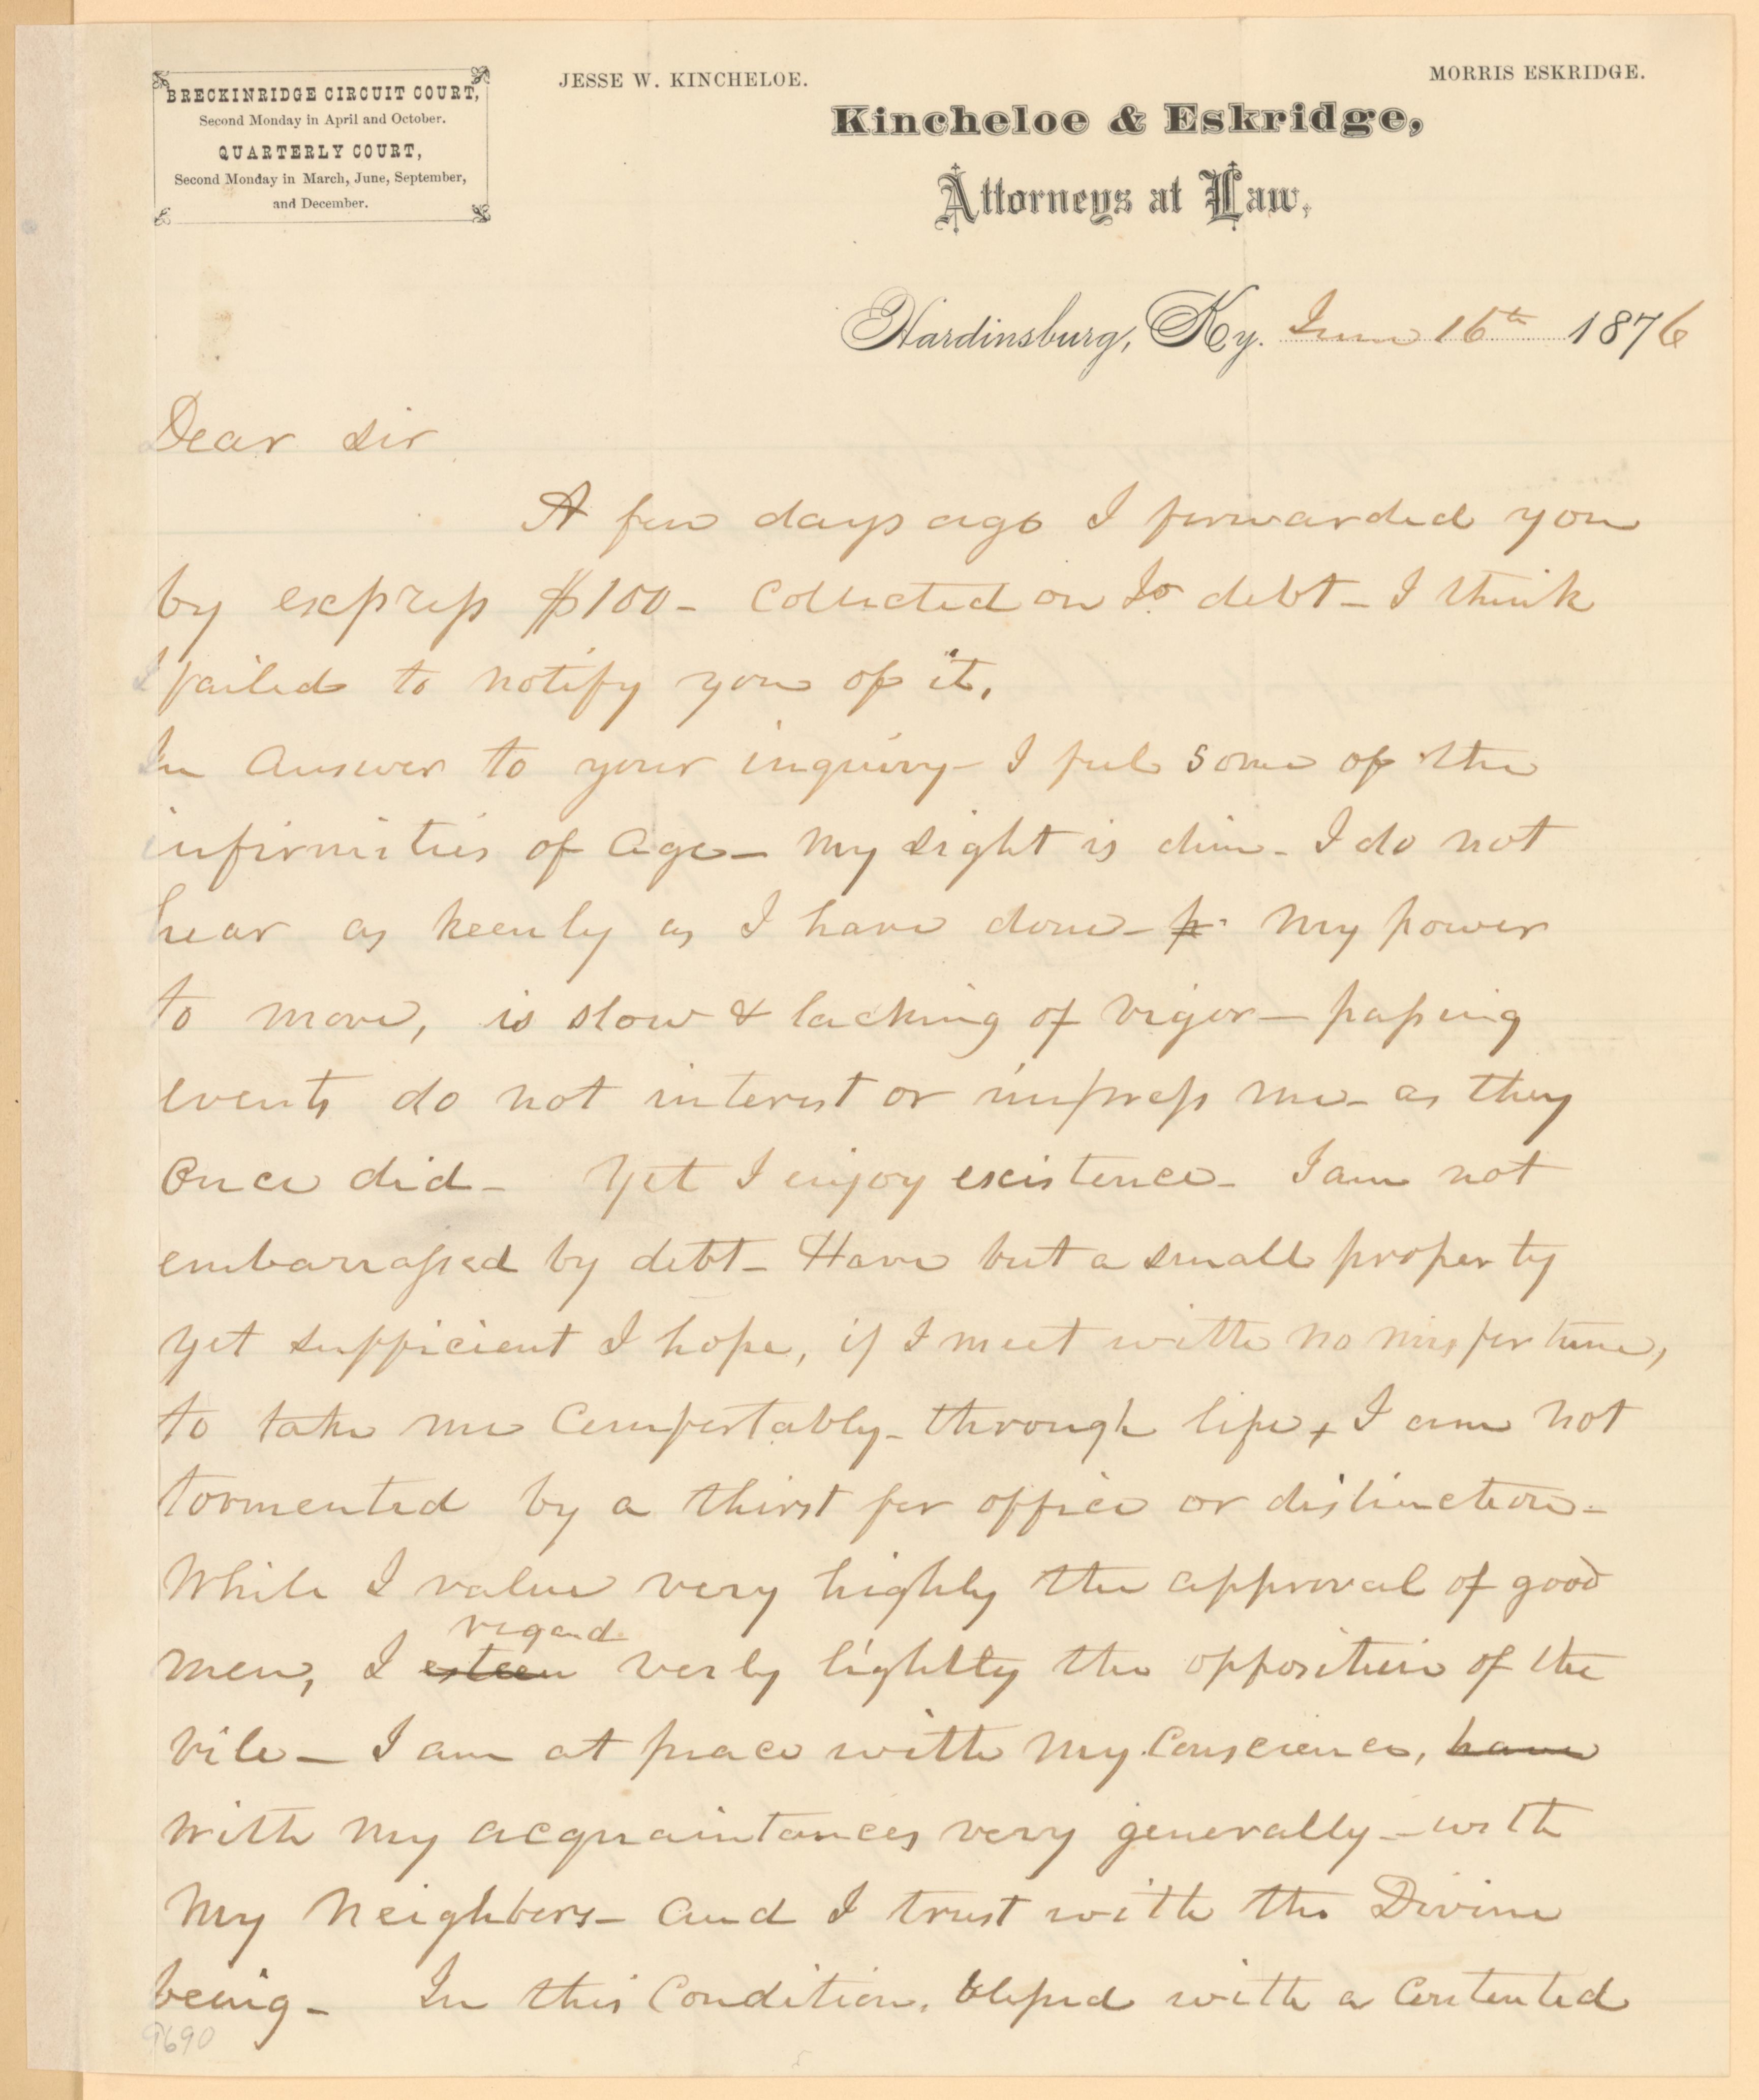 BRECKINRIDGE CIRCUIT COURT,
Second Monday in April and October.
QUARTERLY COURT,
Second Monday in March, June, September,
and December.
JESSE W. KINCHELOE.
MORRIS ESKRIDGE.
Kincheloe & Eskridge,
Attorneys at Law,
Hardinsburg, Ky. June 16th 1876
Dear Sir
A few days ago I forwarded you
by express $100- Collected on Jo debt- I think
I failed to notify you of it.
In answer to your inquiry- I feel some of the
infirmities of age- My sight is dim- I do not
hear as keenly as I have done- My power
to move, is slow & lacking of vigor- passing
events do not interest or impress me- as they
once did- Yet I enjoy existence- I am not
embarrassed by debt- Have but a small property
yet sufficient I hope, if I meet with no misfortune,
to take me Comfortably- through life, I am not
tormented by a thirst for office or distinction-
While I value very highly the approval of good
regard
men, I esteem verly lightly the opposition of the
vile- I am at peace with my Conscience, have
with my acquaintances very generally- with
My Neighbors- and I trust with the Divine
being- In this Condition, blessed with a Contented
9690